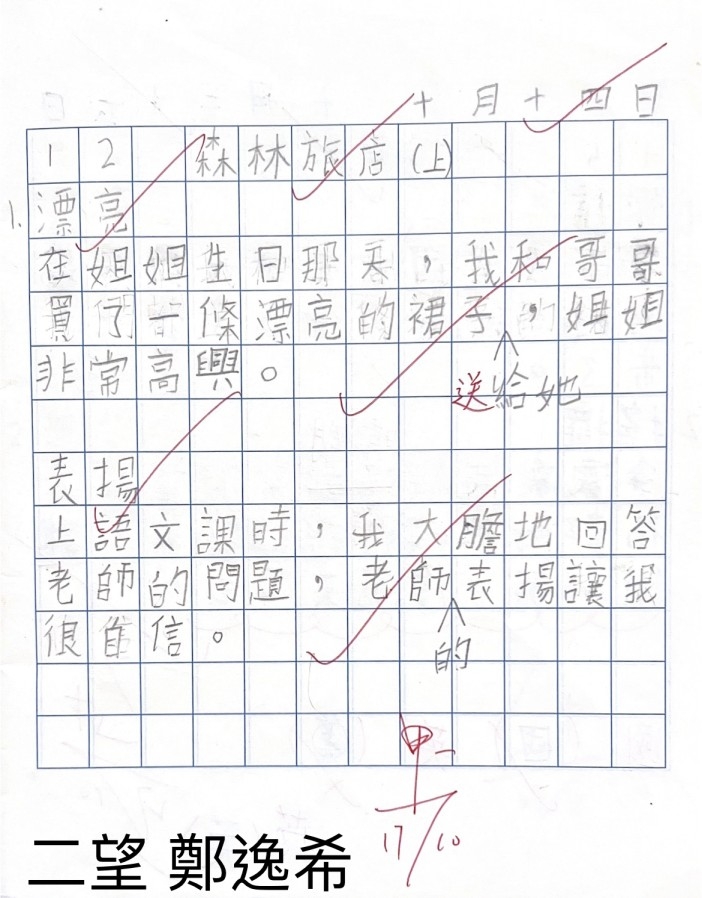 十月十四日
12 森林旅店(上)
1. 漂亮
在姐姐生日那天，我和哥哥
買了一條漂亮的裙子，姐姐
非常高興。
送給她
表揚
上語文課時，我大膽地回答
老師的問題，老師表揚讓我
很自信。
的
甲-
17/10
二望 鄭逸希